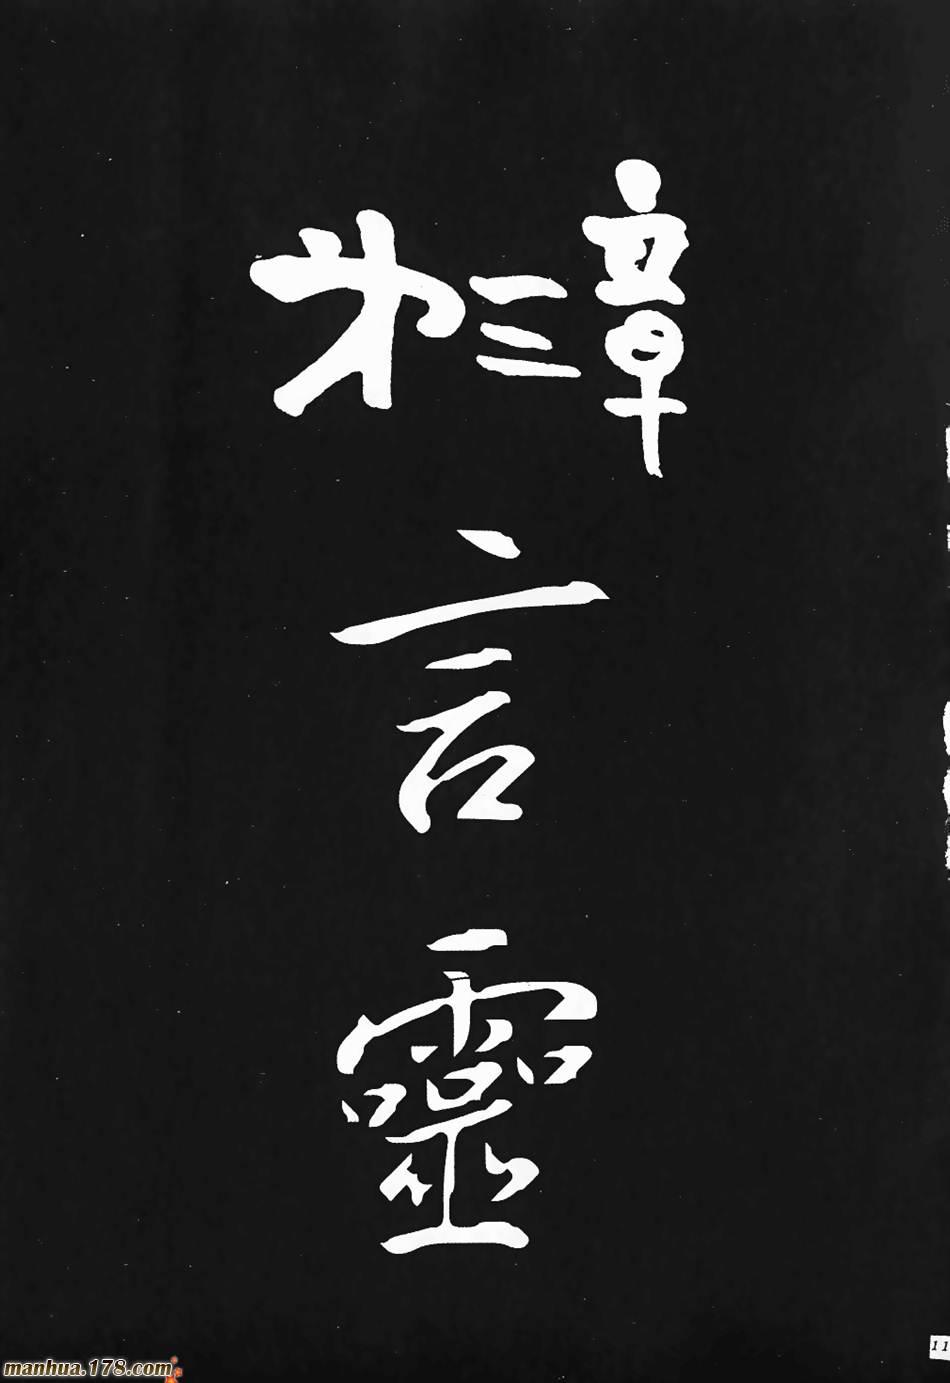 第三章
言
靈
11
manhua.178.com